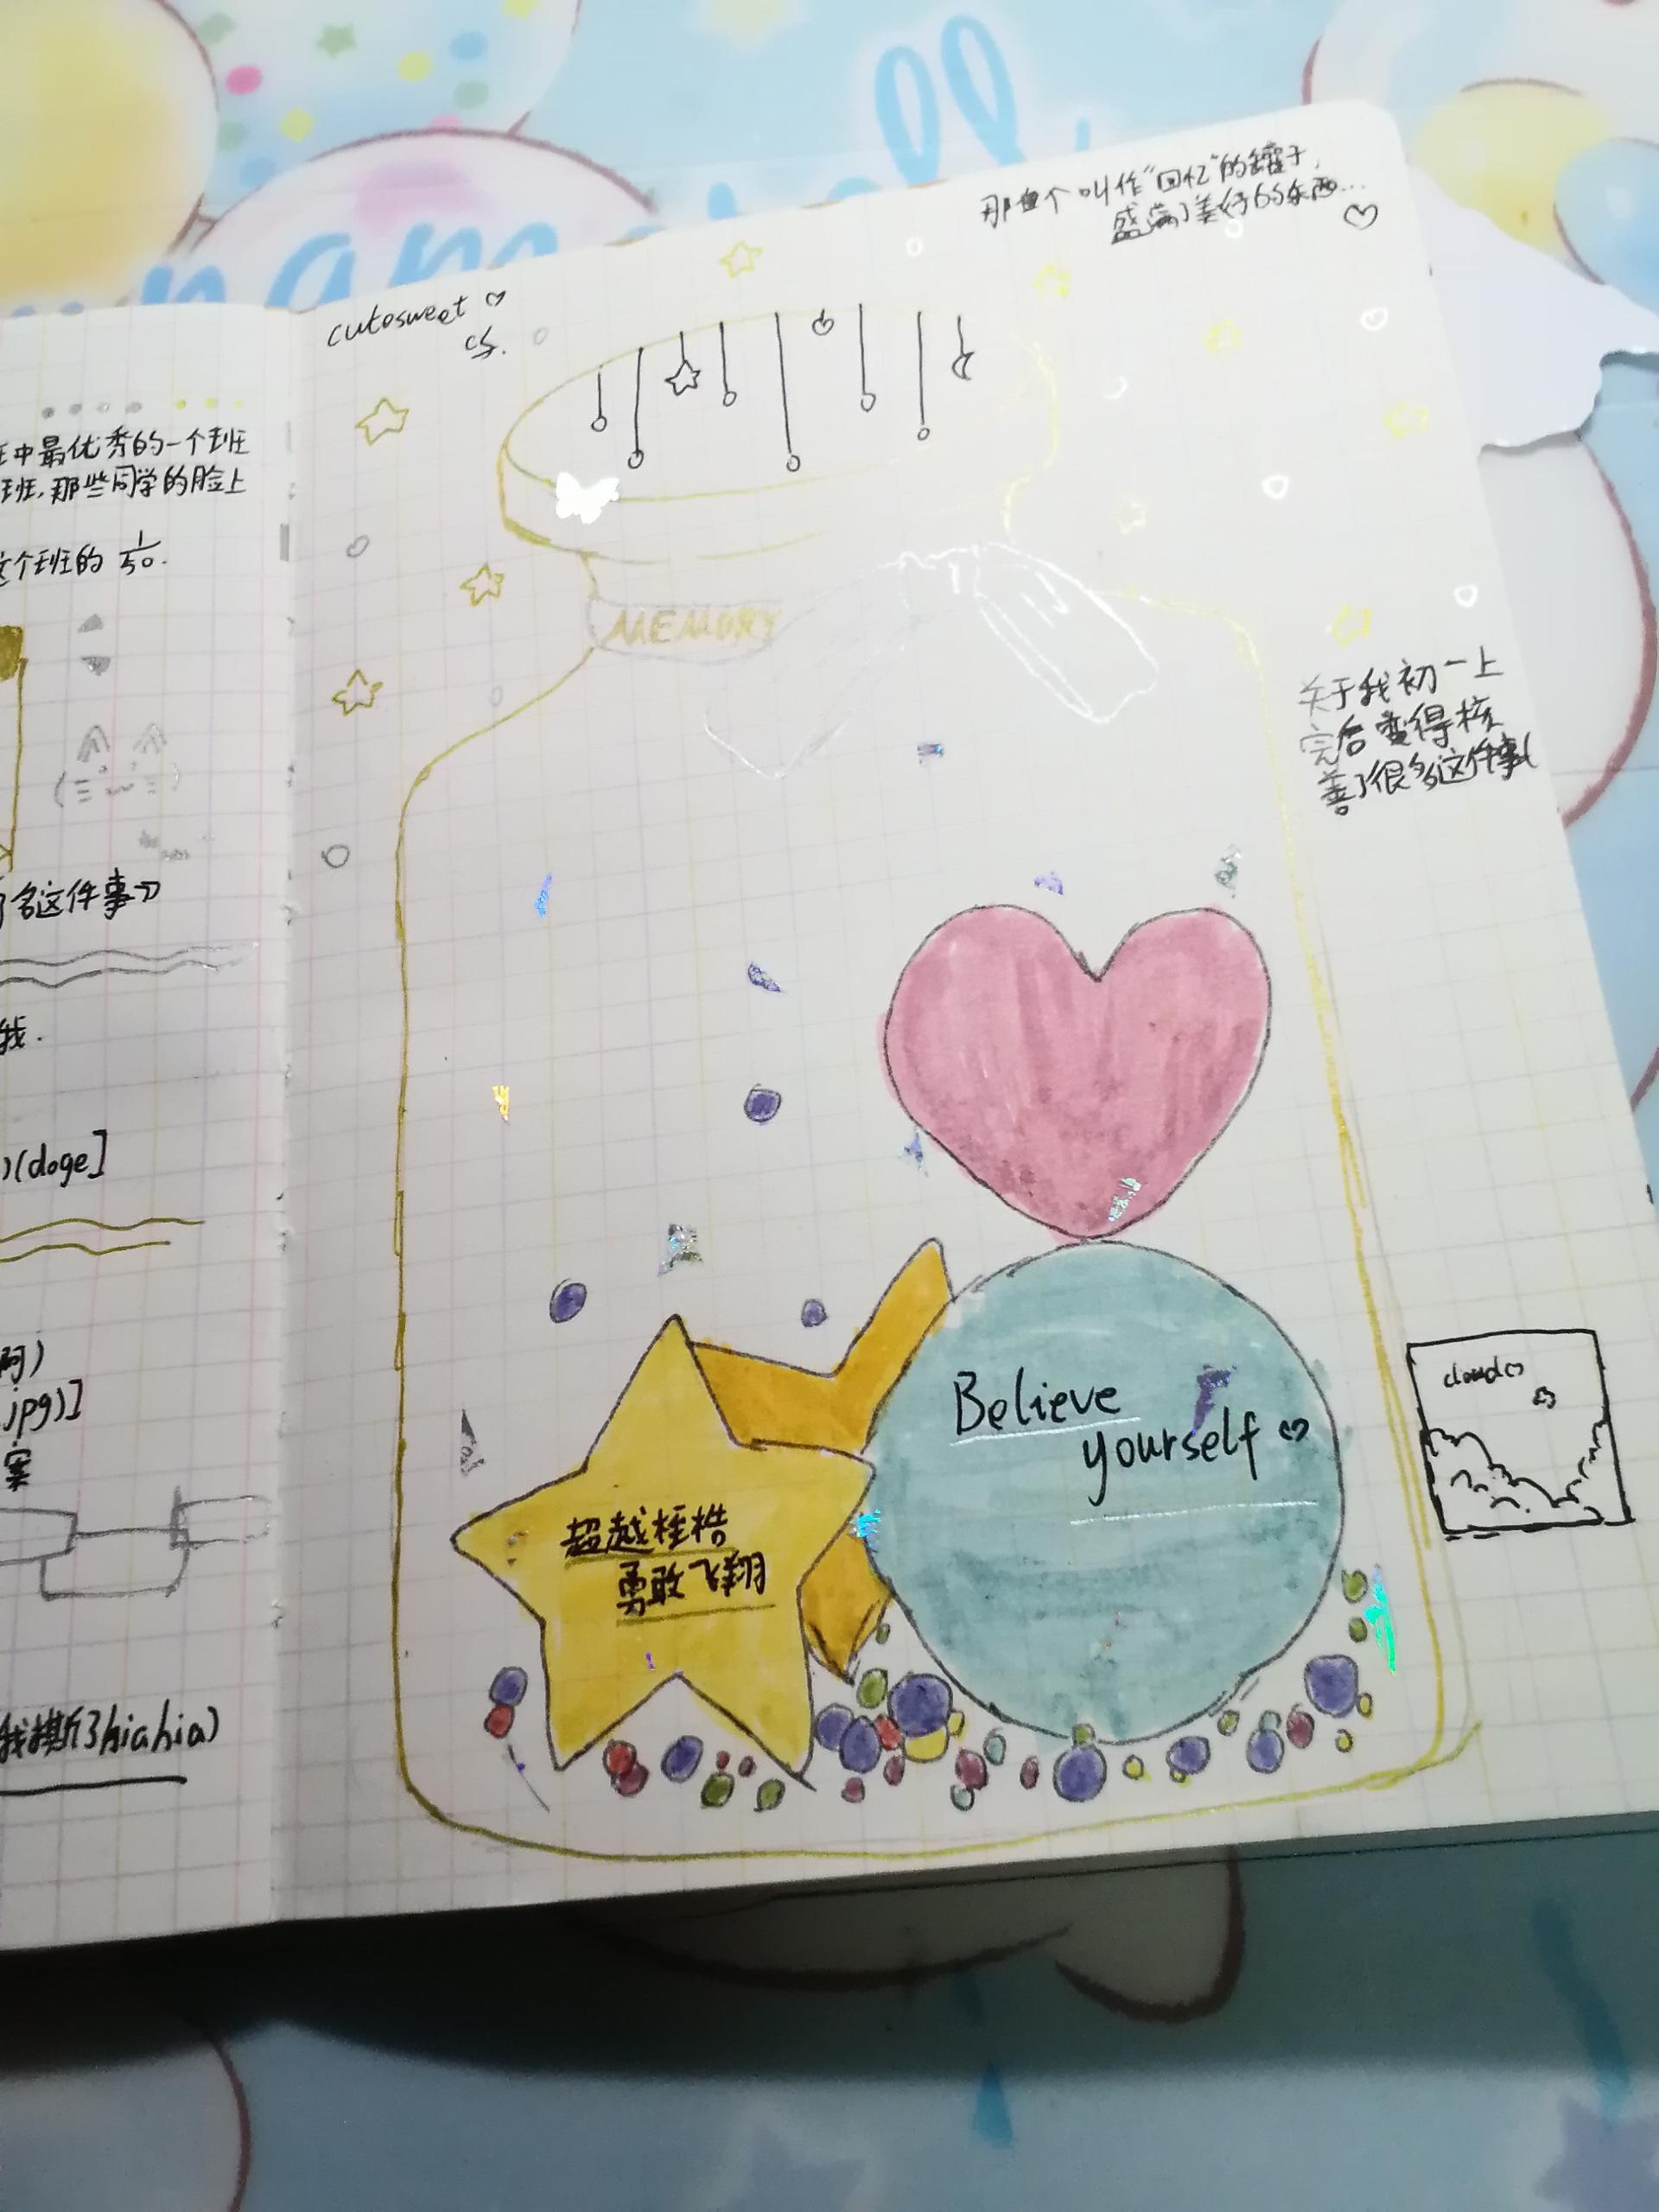 中最优秀的一个班
班，那些同学的脸上
这个班的 1/50.
名这件事》
我.
)(doge]
啊)
.jpg)]
案
hiahia)
cutesweet ♡
那个叫作“回忆”的罐子，
盛满了美好的东西...
♡
MEMORY
关于我初一上
完后变得
善了很多这件事
Believe
yourself ♡
超越桎梏
勇敢飞翔
cloud♡